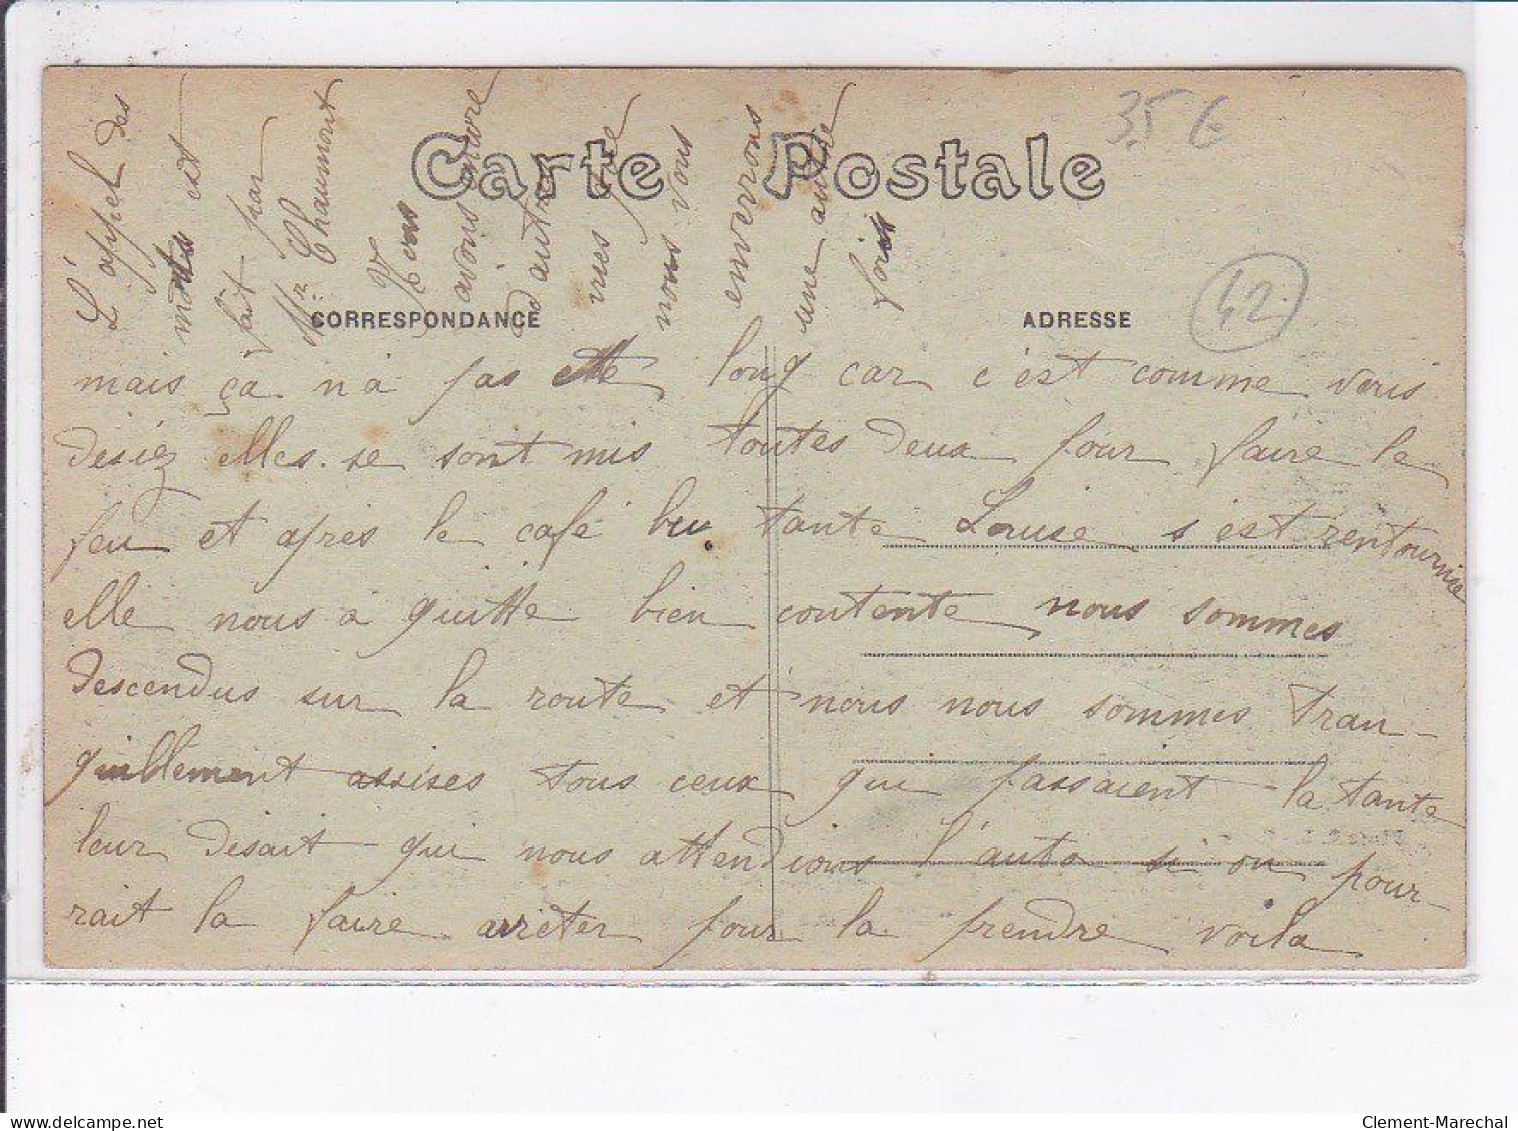 L'appel des
morts est
fait par
Mr. Chaumont
Nous
avons encore
d'autres
vues que
nous vous
enverrons
une autre
fois
Carte Postale
35 €
42
CORRESPONDANCE
ADRESSE
mais ça n'a pas etté long car c'est comme vous
desiez elles se sont mis toutes deux pour faire le
feu et après le café bu. tante Louise s'est rentournée
elle nous à quitte bien contente nous sommes
descendus sur la route et nous nous sommes tran-
quillement assises tous ceux qui passaient la tante
leur disait qui nous attendions l'auto si on pour-
rait la faire arreter pour la prendre voila
Clement-Marechal
delcampe.net